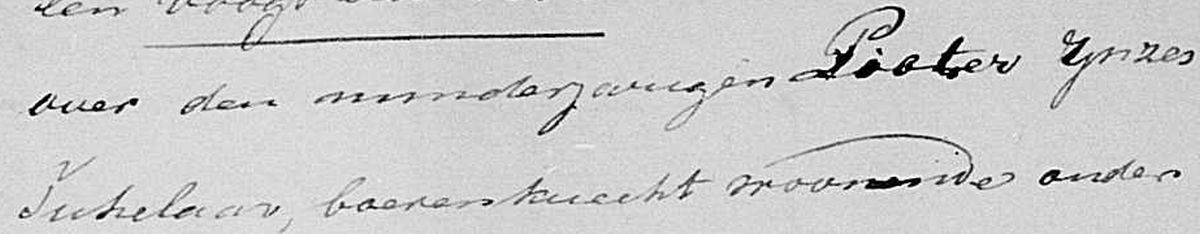 over den minderjarigen Pieter Ynzes
Tuhelaar, boerenknecht woonende onder